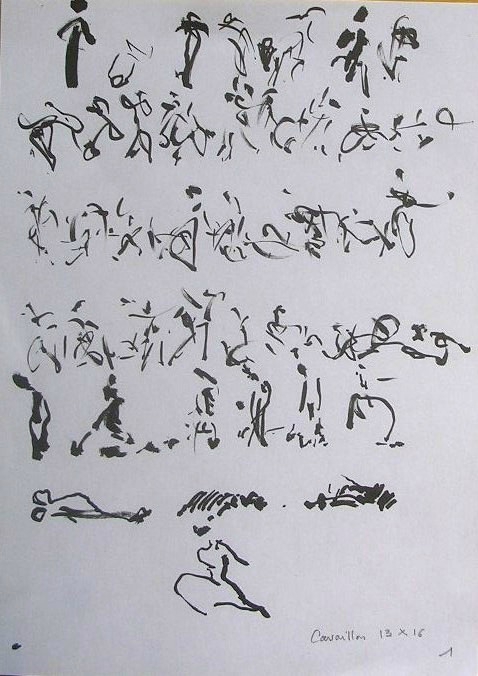 Cavaillon 13 X 16
1